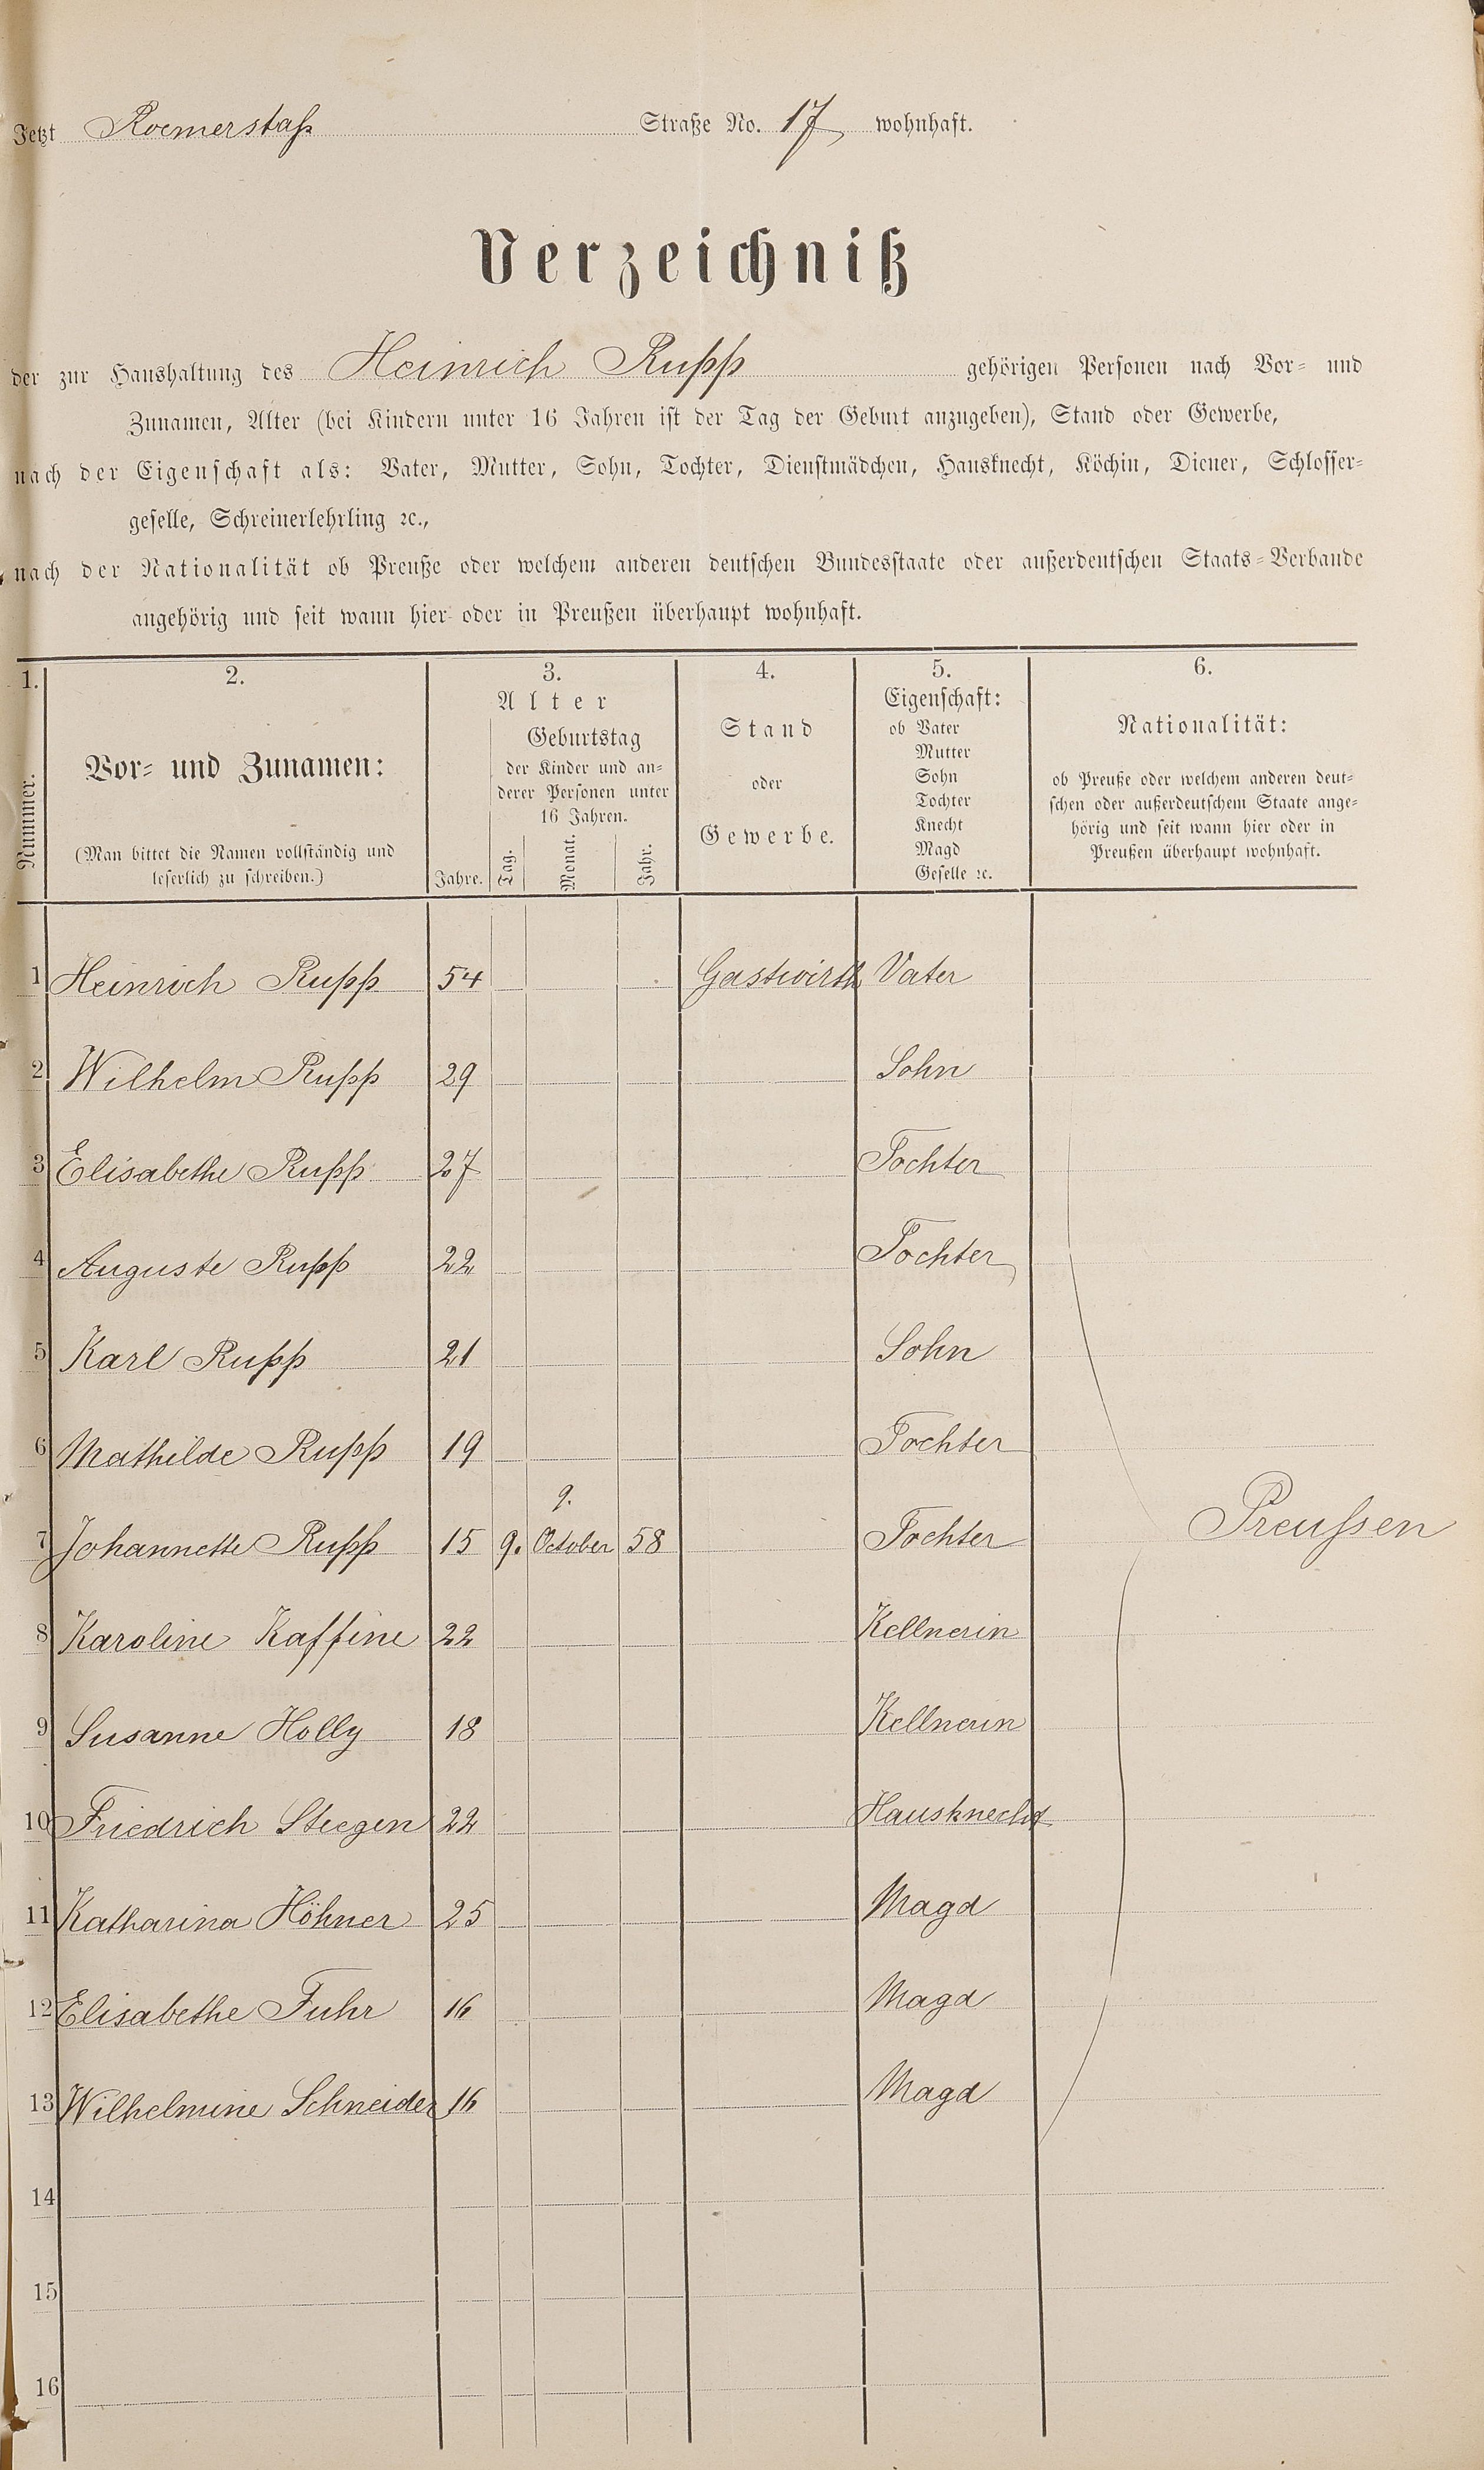 Jetzt Roemerstaß Straße No. 17 wohnhaft.
Verzeichniß
der zur Haushaltung des Heinrich Rupp gehörigen Personen nach Vor- und
Zunamen, Alter (bei Kindern unter 16 Jahren ist der Tag der Geburt anzugeben), Stand oder Gewerbe,
nach der Eigenschaft als: Vater, Mutter, Sohn, Tochter, Dienstmädchen, Hausknecht, Köchin, Diener, Schlosser-
geselle, Schreinerlehrling ꝛc.,
nach der Nationalität ob Preuße oder welchem anderen deutschen Bundesstaate oder außerdeutschen Staats-Verbande
angehörig und seit wann hier oder in Preußen überhaupt wohnhaft.
1.
Nummer.
2.
Vor- und Zunamen:
(Man bittet die Namen vollständig und
leserlich zu schreiben.)
3.
Alter
Geburtstag
der Kinder und an-
derer Personen unter
16 Jahren.
Jahre. Tag. Monat. Jahr.
4.
Stand
oder
Gewerbe.
5.
Eigenschaft:
ob Vater
Mutter
Sohn
Tochter
Knecht
Magd
Geselle ꝛc.
6.
Nationalität:
ob Preuße oder welchem anderen deut-
schen oder außerdeutschem Staate ange-
hörig und seit wann hier oder in
Preußen überhaupt wohnhaft.
1 Heinrich Rupp 54 Gastwirth Vater
2 Wilhelm Rupp 29 Sohn
3 Elisabethe Rupp 27 Tochter
4 Auguste Rupp 22 Tochter
5 Karl Rupp 21 Sohn
6 Mathilde Rupp 19 Tochter
9.
7 Johannette Rupp 15 9. October 58 Tochter Preußen
8 Karoline Kaffine 22 Kellnerin
9 Susanne Holly 18 Kellnerin
10 Friedrich Steegen 22 Hausknecht
11 Katharina Höhner 25 Magd
12 Elisabethe Fuhr 16 Magd
13 Wilhelmine Schneider 16 Magd
14
15
16